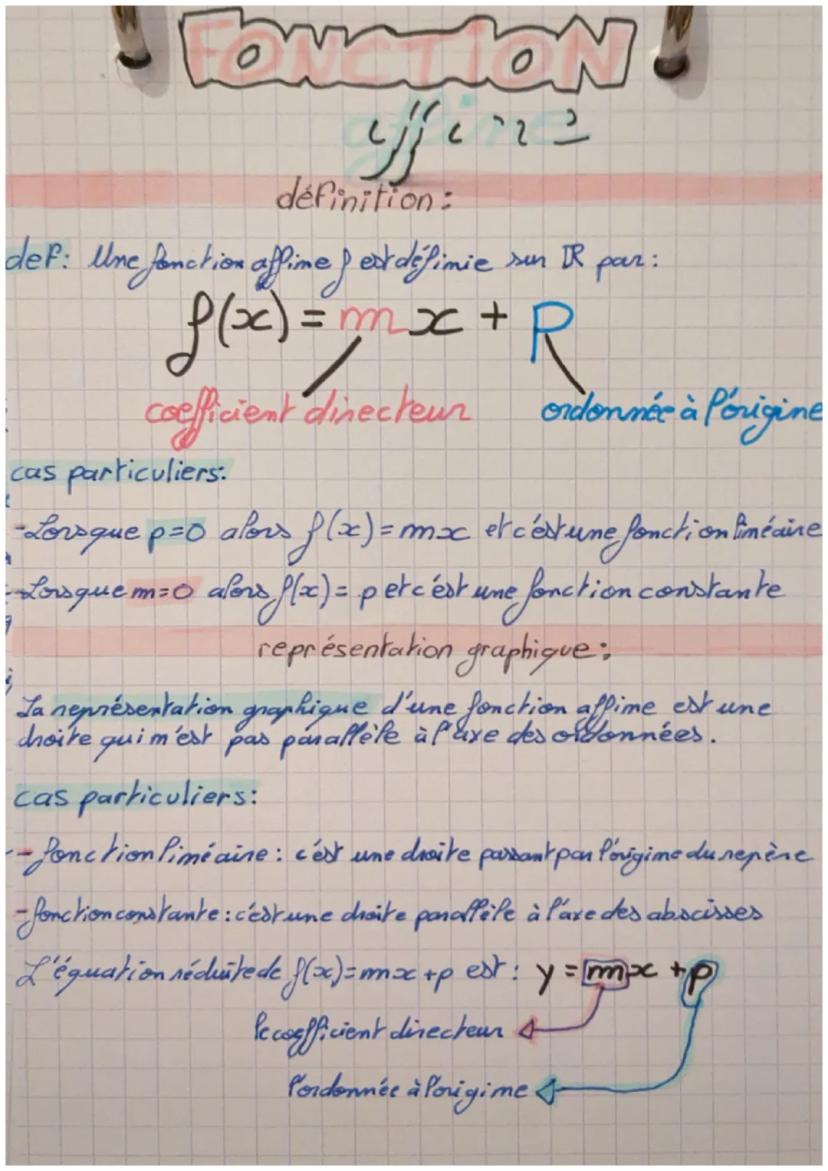 FONCTION
affine
définition :
def: Une fonction affine f est définie sur IR par :
f(x) = mx + p
coefficient directeur ordonnée à l'origine
cas particuliers:
-Lorsque p=0 alors f(x) = mx et c'est une fonction linéaire
-Lorsque m=0 alors f(x) = p et c'est une fonction constante
représentation graphique :
La représentation graphique d'une fonction affine est une
droite qui n'est pas parallèle à l'axe des ordonnées.
cas particuliers:
- fonction linéaire : c'est une droite passant par l'origine du repère
- fonction constante : c'est une droite parallèle à l'axe des abscisses
L'équation réduite de f(x)=mx+p est : y = mx + p
le coefficient directeur
l'ordonnée à l'origine